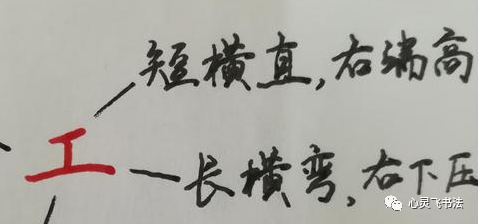 短横直,右端高
工
长横弯,右下压
心灵飞书法